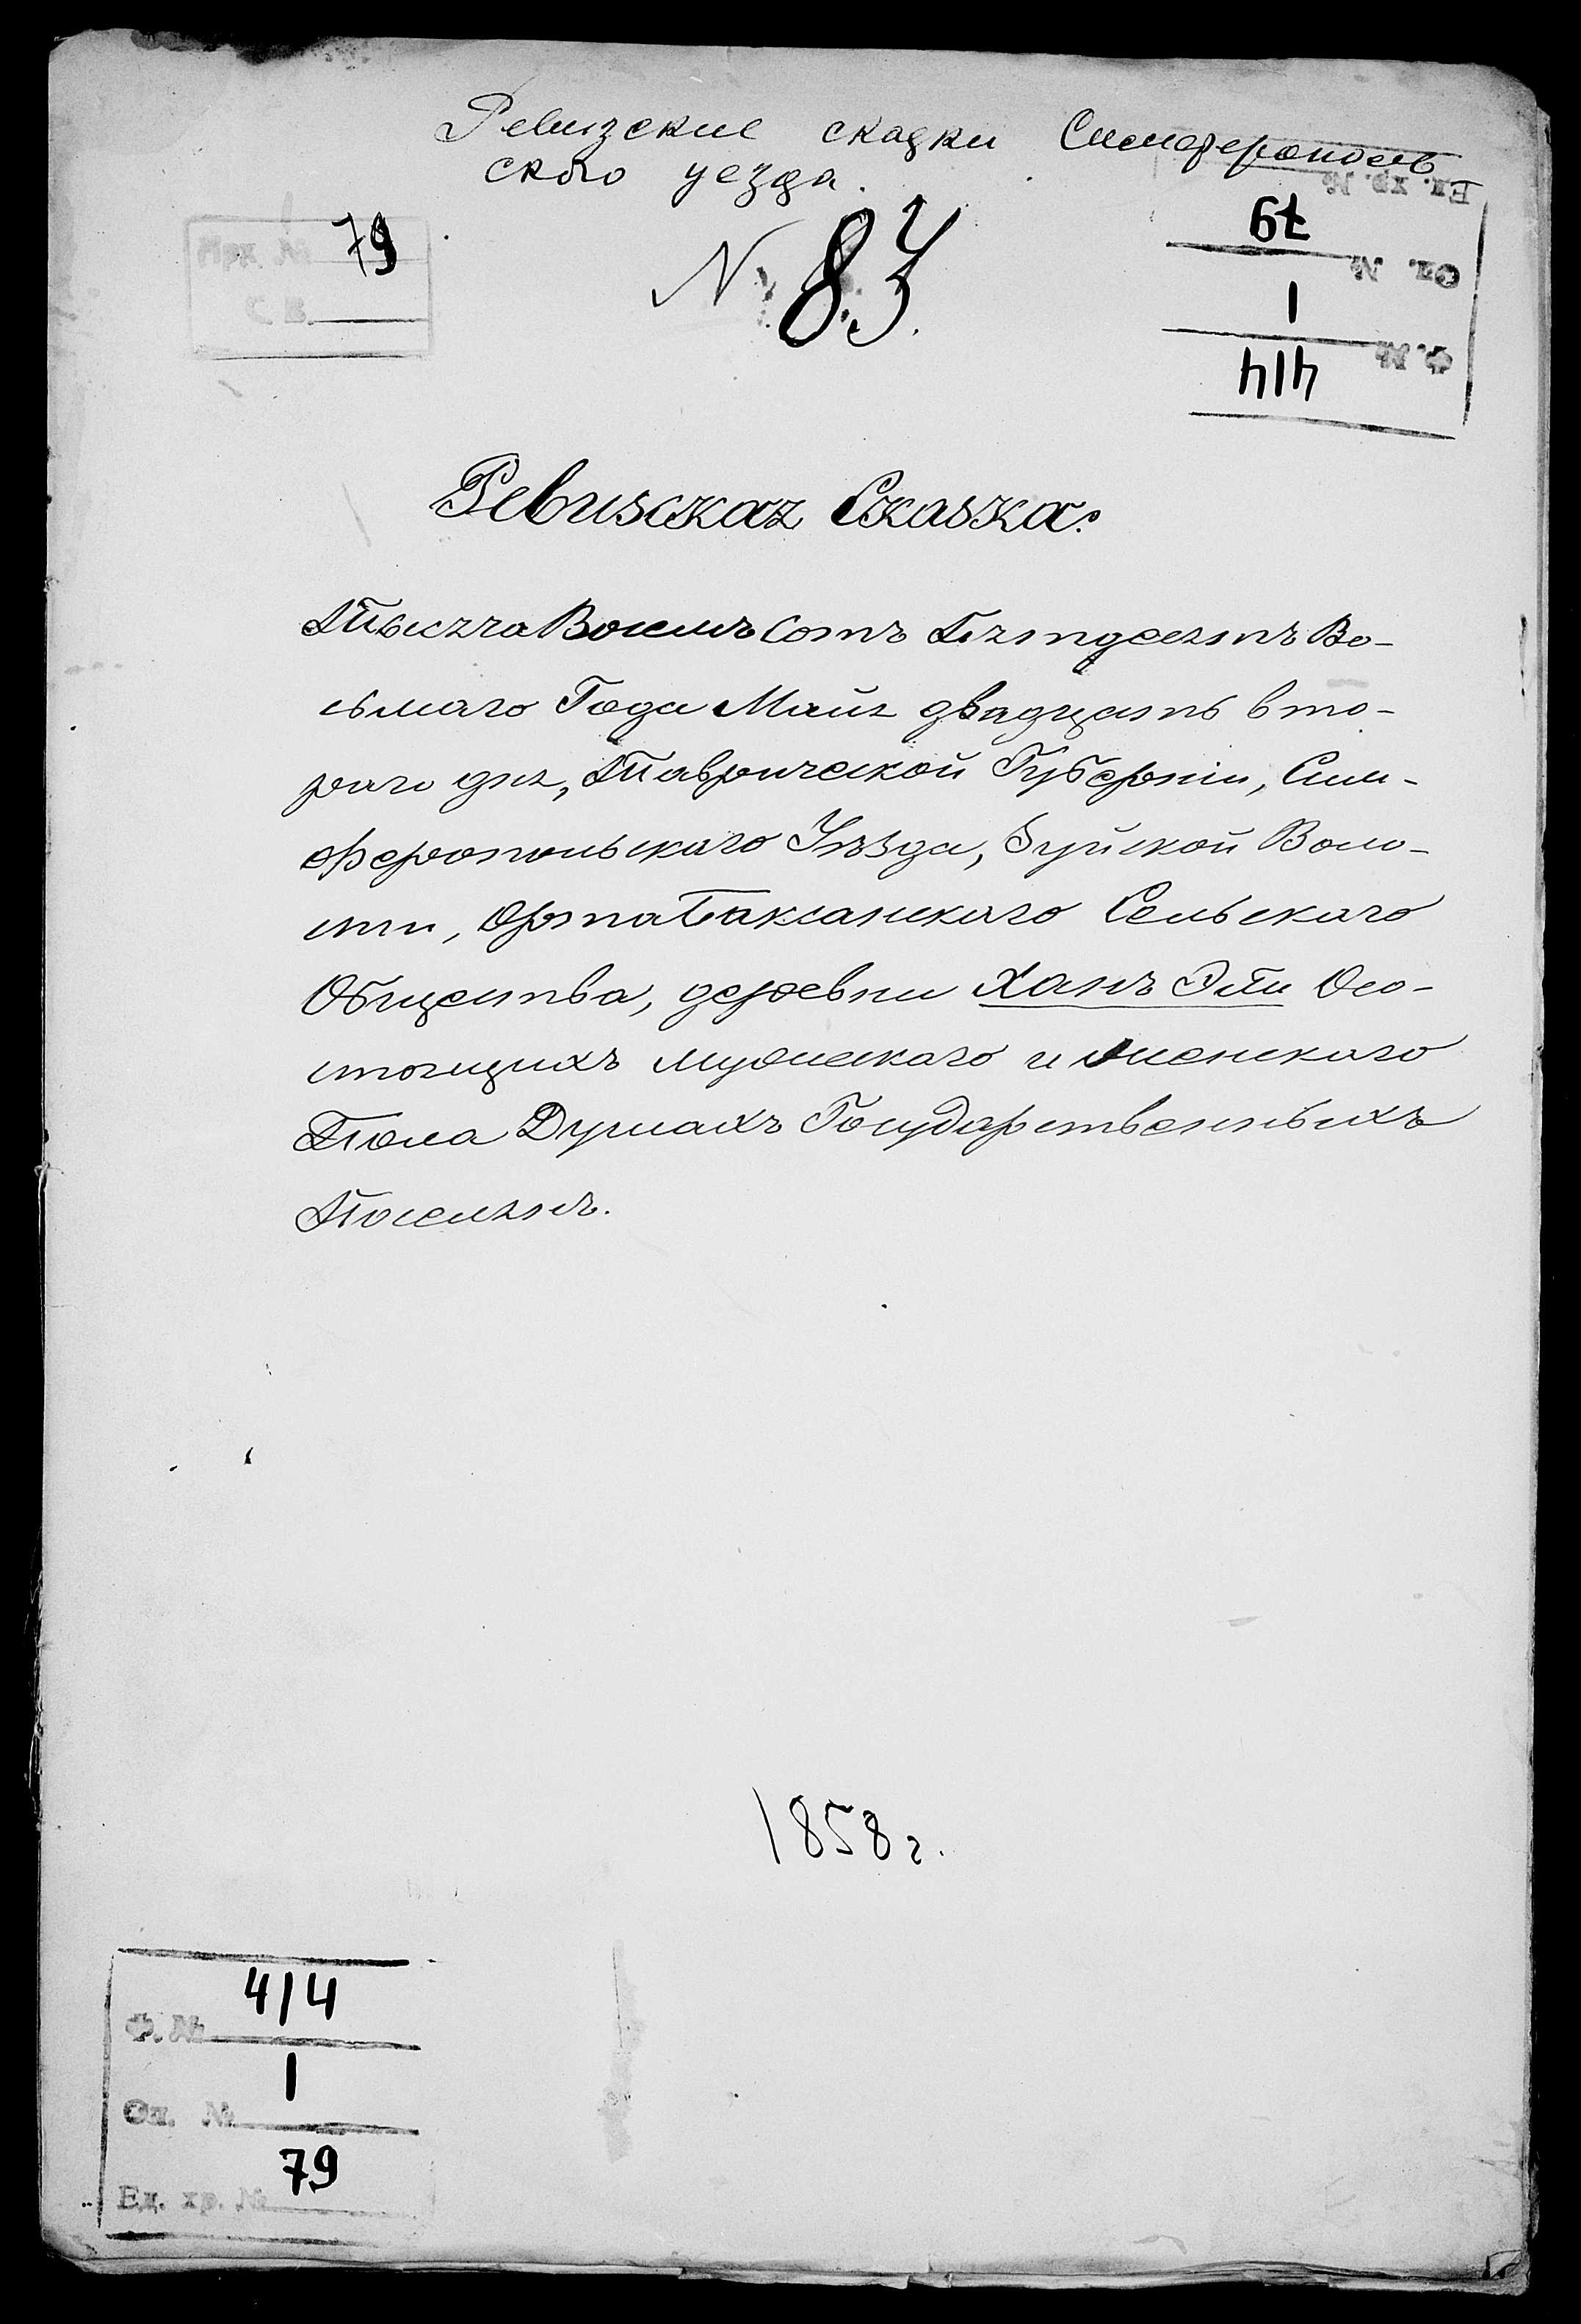 Ревизские сказки Симферополь
ского уезда.
Арх. № 79
С. В.
Ед. хр. № 79
Оп. № 1
Ф. № 414
N 83.
Ревизская Сказка.
Тысяча Восемь Сотъ Пятдесятъ Во-
сьмаго Года Маія двадцать вто-
раго дня, Таврической Губерніи, Сим-
феропольскаго Уѣзда, Зуйской Воло-
сти, Орта Саксанскаго Сельскаго
Общества, деревни Ханъ Эли О со-
стоящихъ мужескаго и женскаго
Пола Душахъ Государственныхъ
Поселянъ.
1858 г.
Ф. № 414
Оп. № 1
Ед. хр. № 79